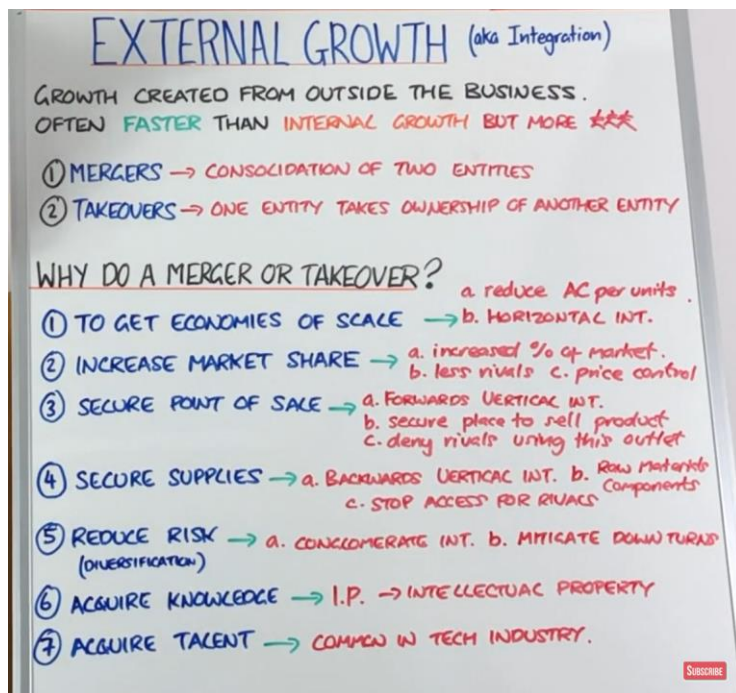 EXTERNAL GROWTH (aka Integration)
GROWTH CREATED FROM OUTSIDE THE BUSINESS.
OFTEN FASTER THAN INTERNAL GROWTH BUT MORE
① MERGERS → CONSOLIDATION OF TWO ENTITIES
② TAKEOVERS → ONE ENTITY TAKES OWNERSHIP OF ANOTHER ENTITY
WHY DO A MERGER OR TAKEOVER?
① TO GET ECONOMIES OF SCALE → a reduce AC per units.
b. HORIZONTAL INT.
② INCREASE MARKET SHARE → a. increased % of market.
b. less rivals c. price control
③ SECURE POINT OF SALE → a. FORWARDS VERTICAL INT.
b. secure place to sell product
c. deny rivals using this outlet
④ SECURE SUPPLIES → a. BACKWARDS VERTICAL INT. b. Raw Materials
Components
c. STOP ACCESS FOR RIVALS
⑤ REDUCE RISK → a. CONGLOMERATE INT. b. MITIGATE DOWNTURNS
(DIVERSIFICATION)
⑥ ACQUIRE KNOWLEDGE → I.P. → INTELLECTUAL PROPERTY
⑦ ACQUIRE TALENT → COMMON IN TECH INDUSTRY.
SUBSCRIBE